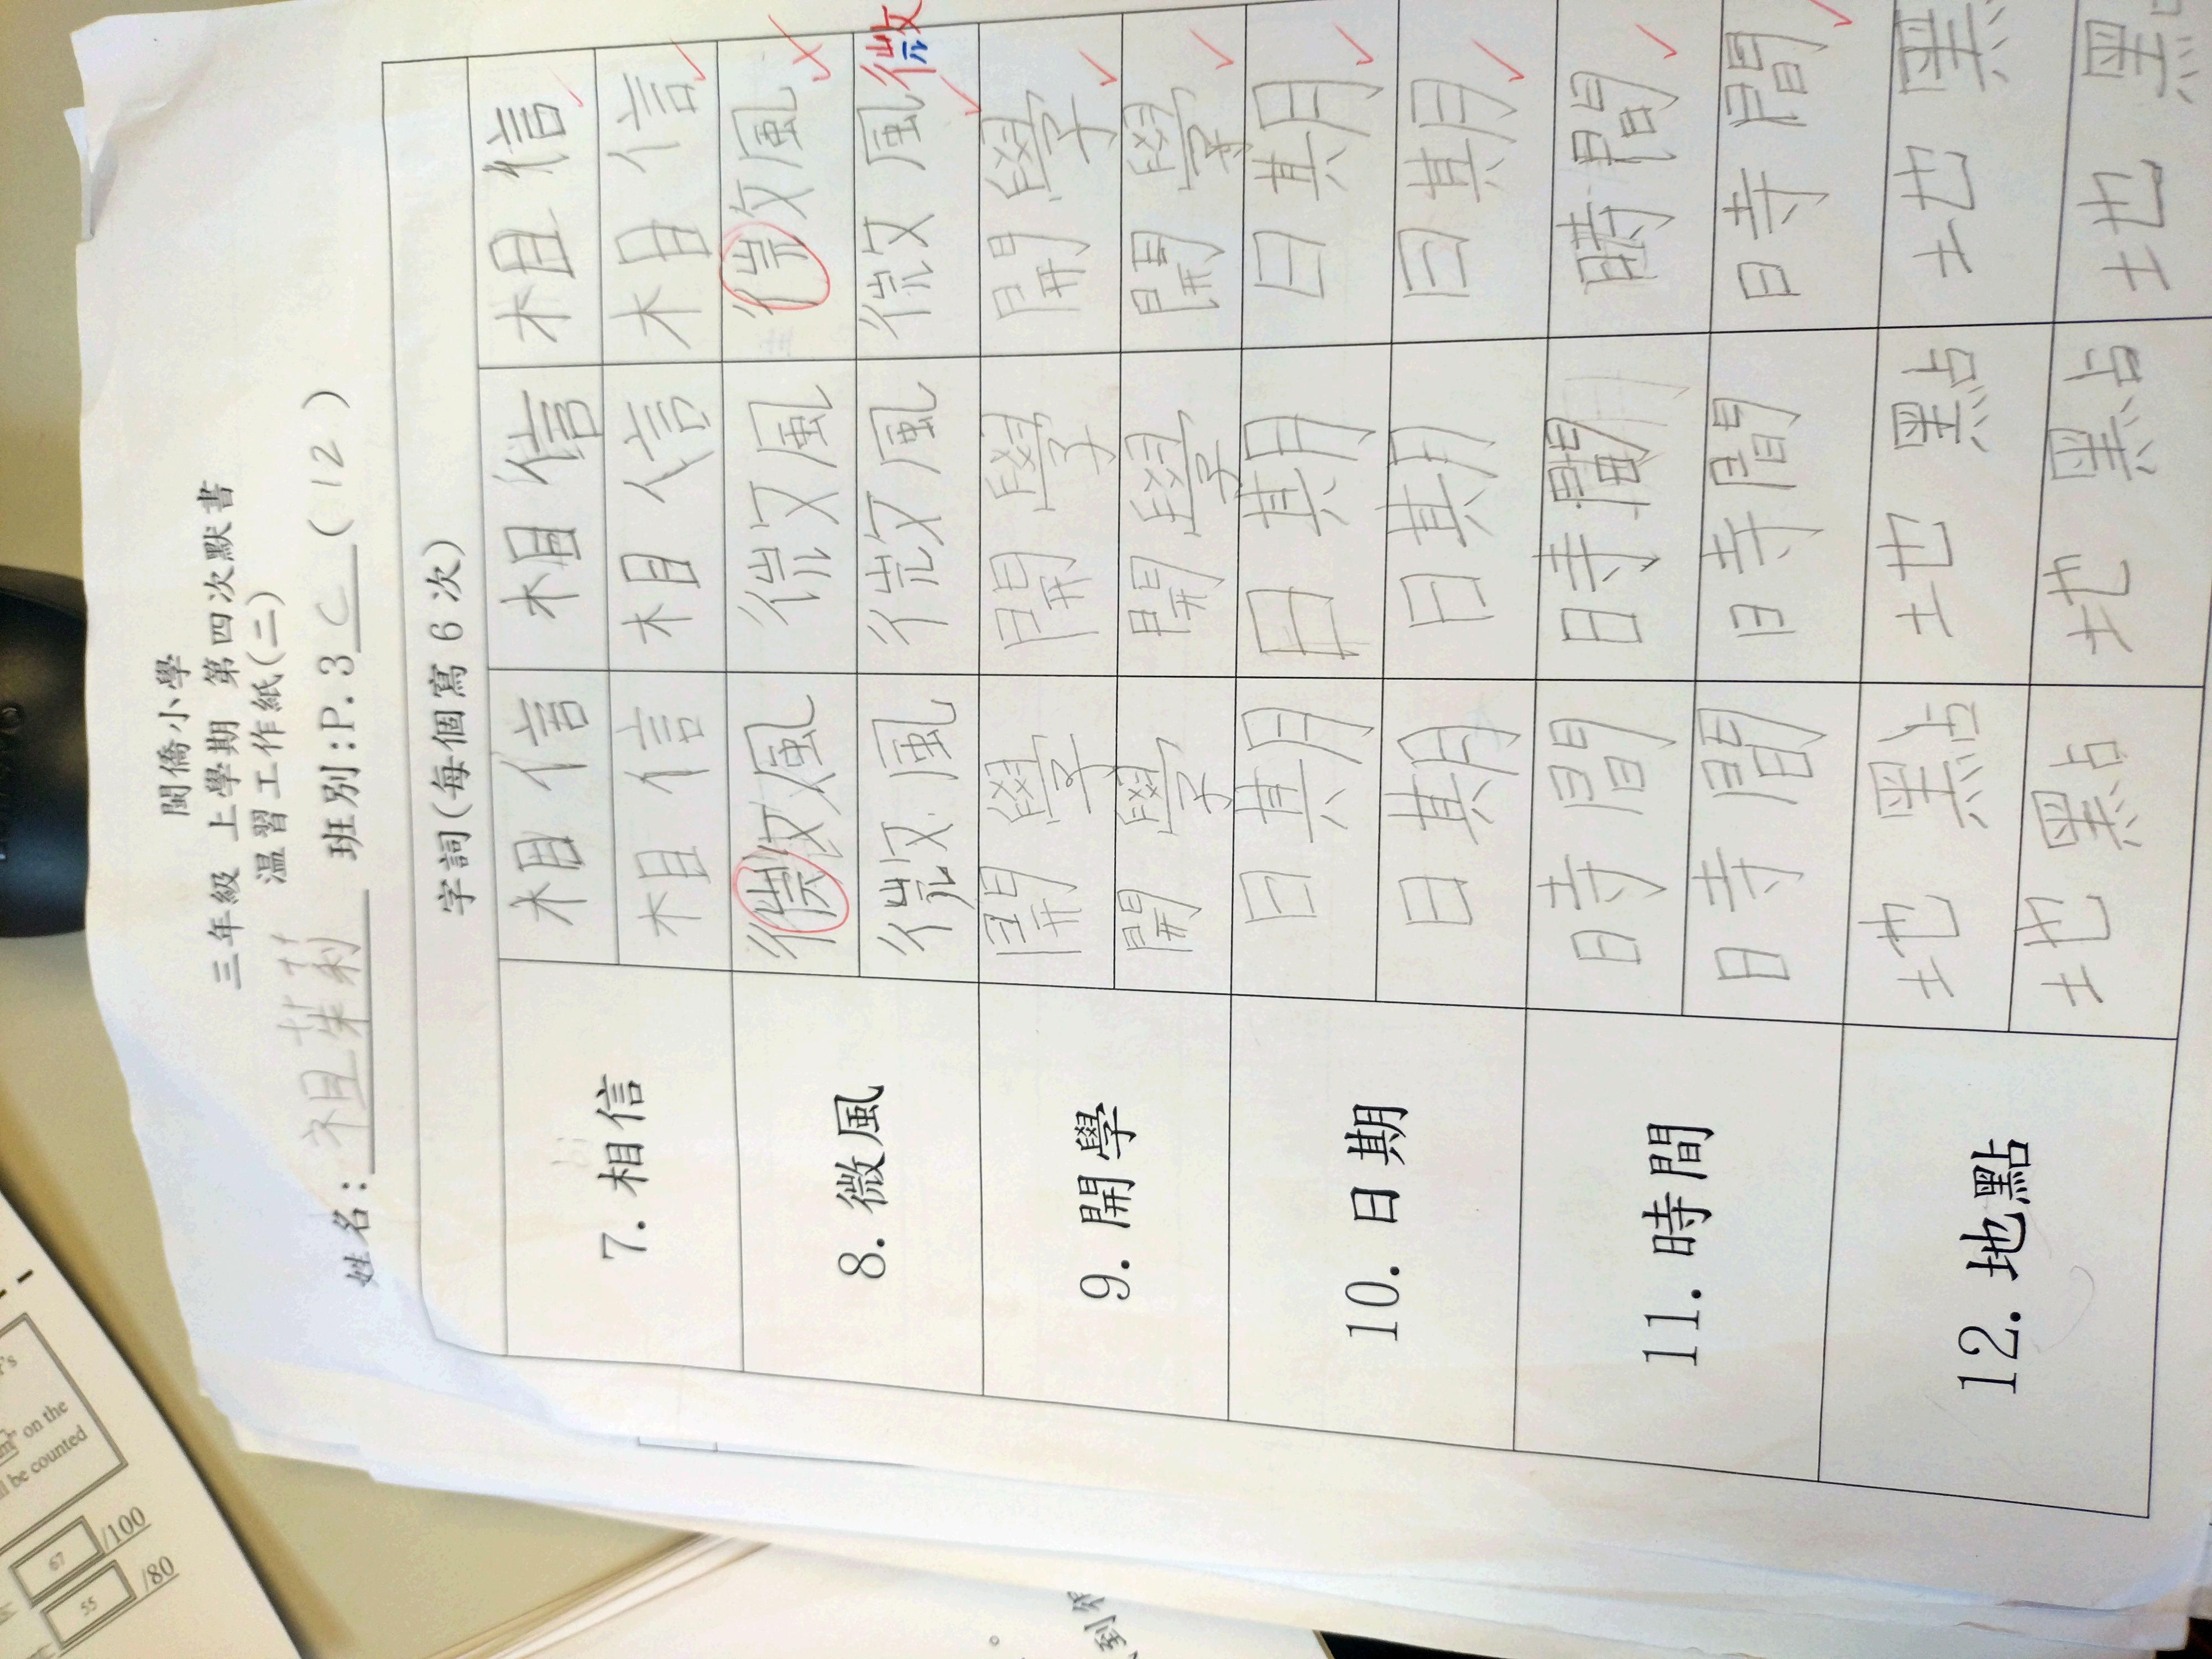 閩僑小學
三年級 上學期 第四次默書
溫習工作紙(二)
姓名: 祖茱莉 班別:P.3 C (12)
字詞(每個寫6次)
7. 相信 相信 相信 相信
相信 相信 相信
8. 微風 微風 微風 微風
微風 微風 微風 微
9. 開學 開學 開學 開學
開學 開學 開學
10. 日期 日期 日期 日期
日期 日期 日期
11. 時間 時間 時間 時間
時間 時間 時間
12. 地點 地點 地點 地黑
地點 地點 地黑
on the
ll be counted
67 /100
55 /80